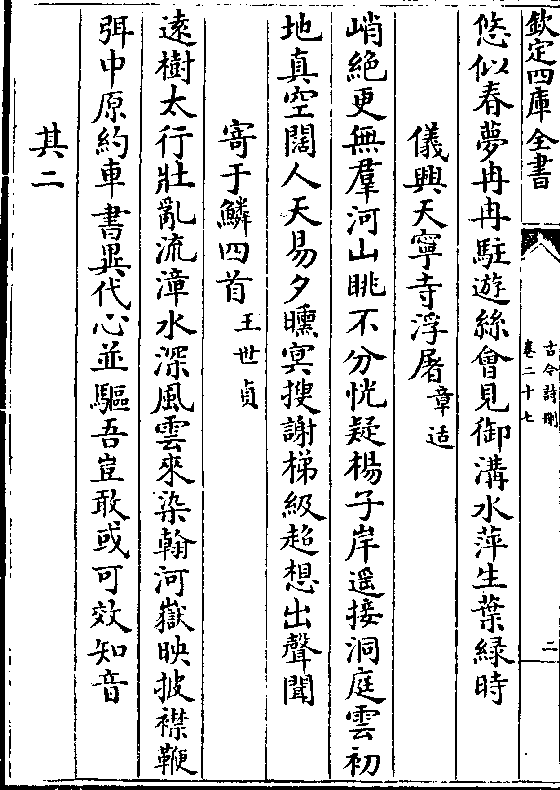 欽定四庫全書
古今詩刪
卷二十七
二
悠似春夢冉冉駐遊絲會見御溝水萍生葉緑時
儀興天寧寺浮屠章适
峭絶更無羣河山眺不分恍疑楊子岸遥接洞庭雲初
地真空闊人天易夕曛冥搜謝梯級超想出聲聞
寄于鱗四首王世貞
逺樹太行壯亂流漳水深風雲來染翰河嶽映披襟鞭
弭中原約車書異代心並驅吾豈敢或可效知音
其二